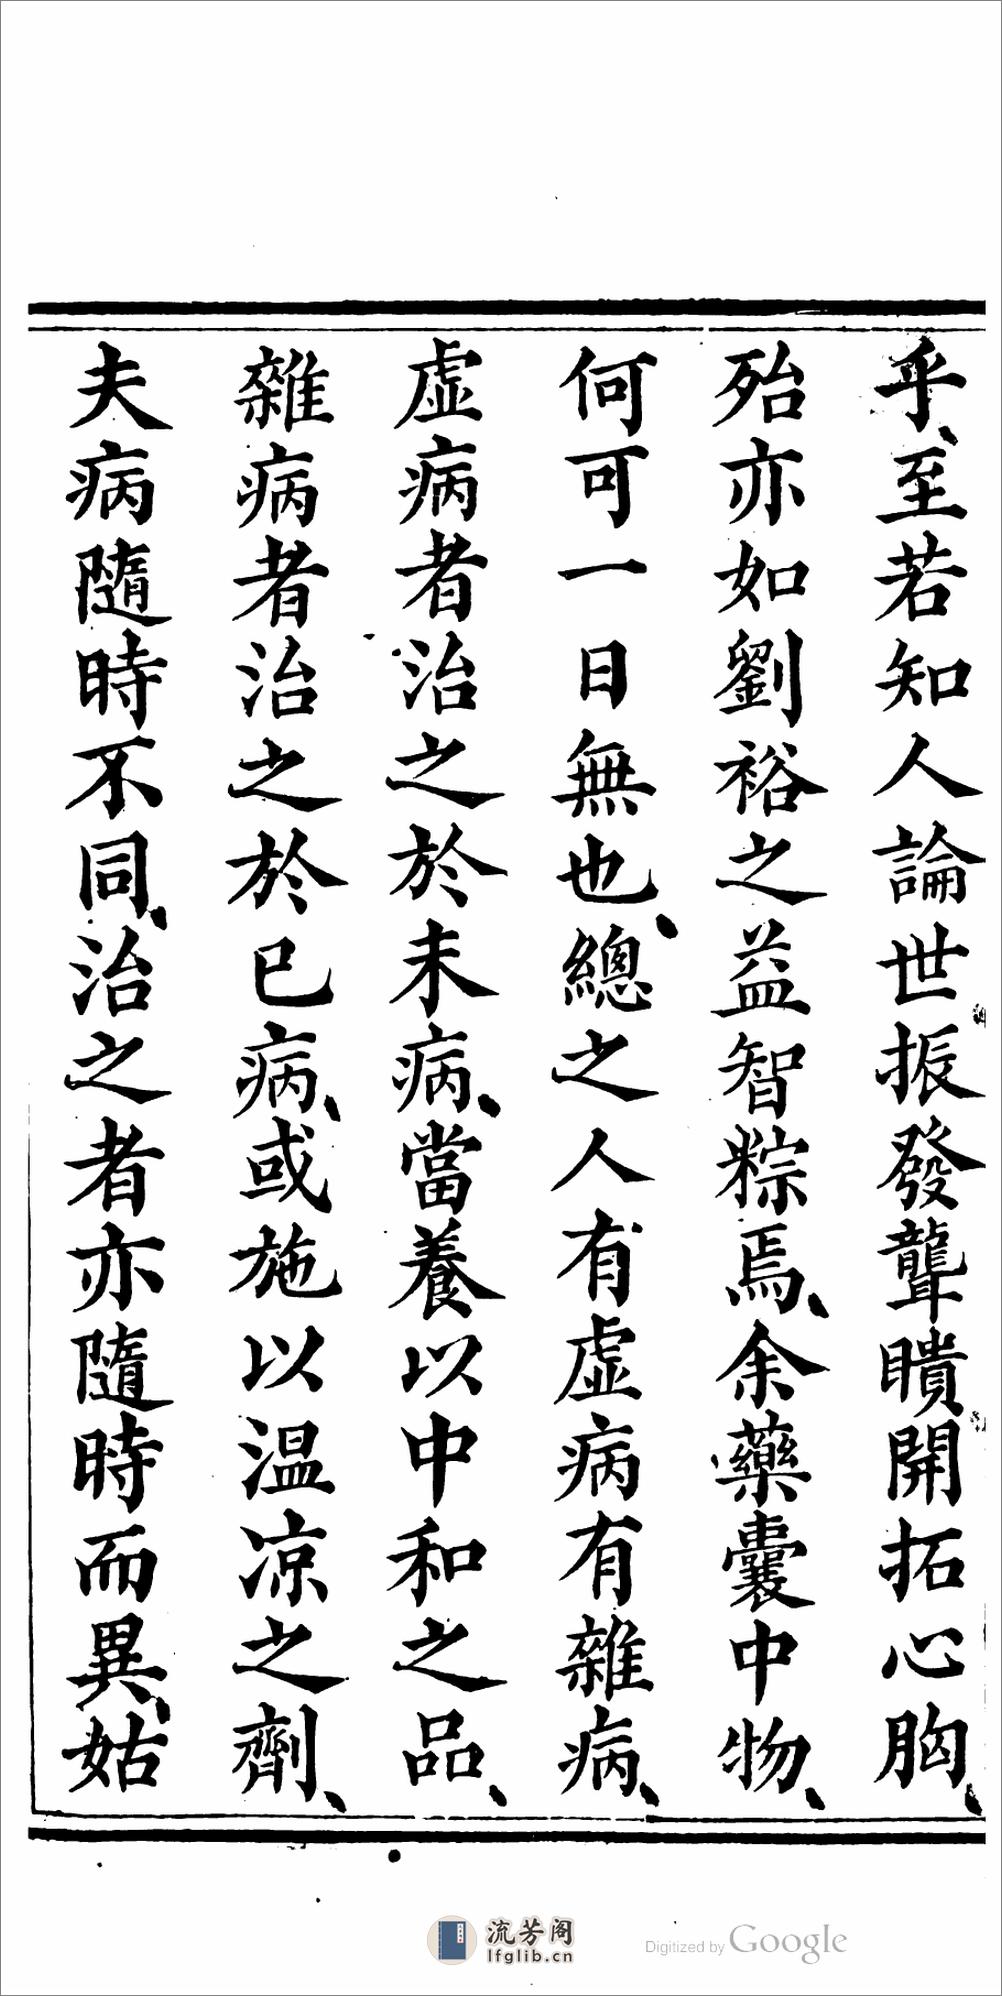 乎、至若知人論世振發聾瞶開拓心胸、
殆亦如劉裕之益智粽焉、余藥囊中物、
何可一日無也、總之人有虛病有雜病、
虛病者治之於未病、當養以中和之品、
雜病者治之於已病、或施以温凉之劑、
夫病隨時不同、治之者亦隨時而異、姑
流芳阁
lfglib.cn
Digitized by Google